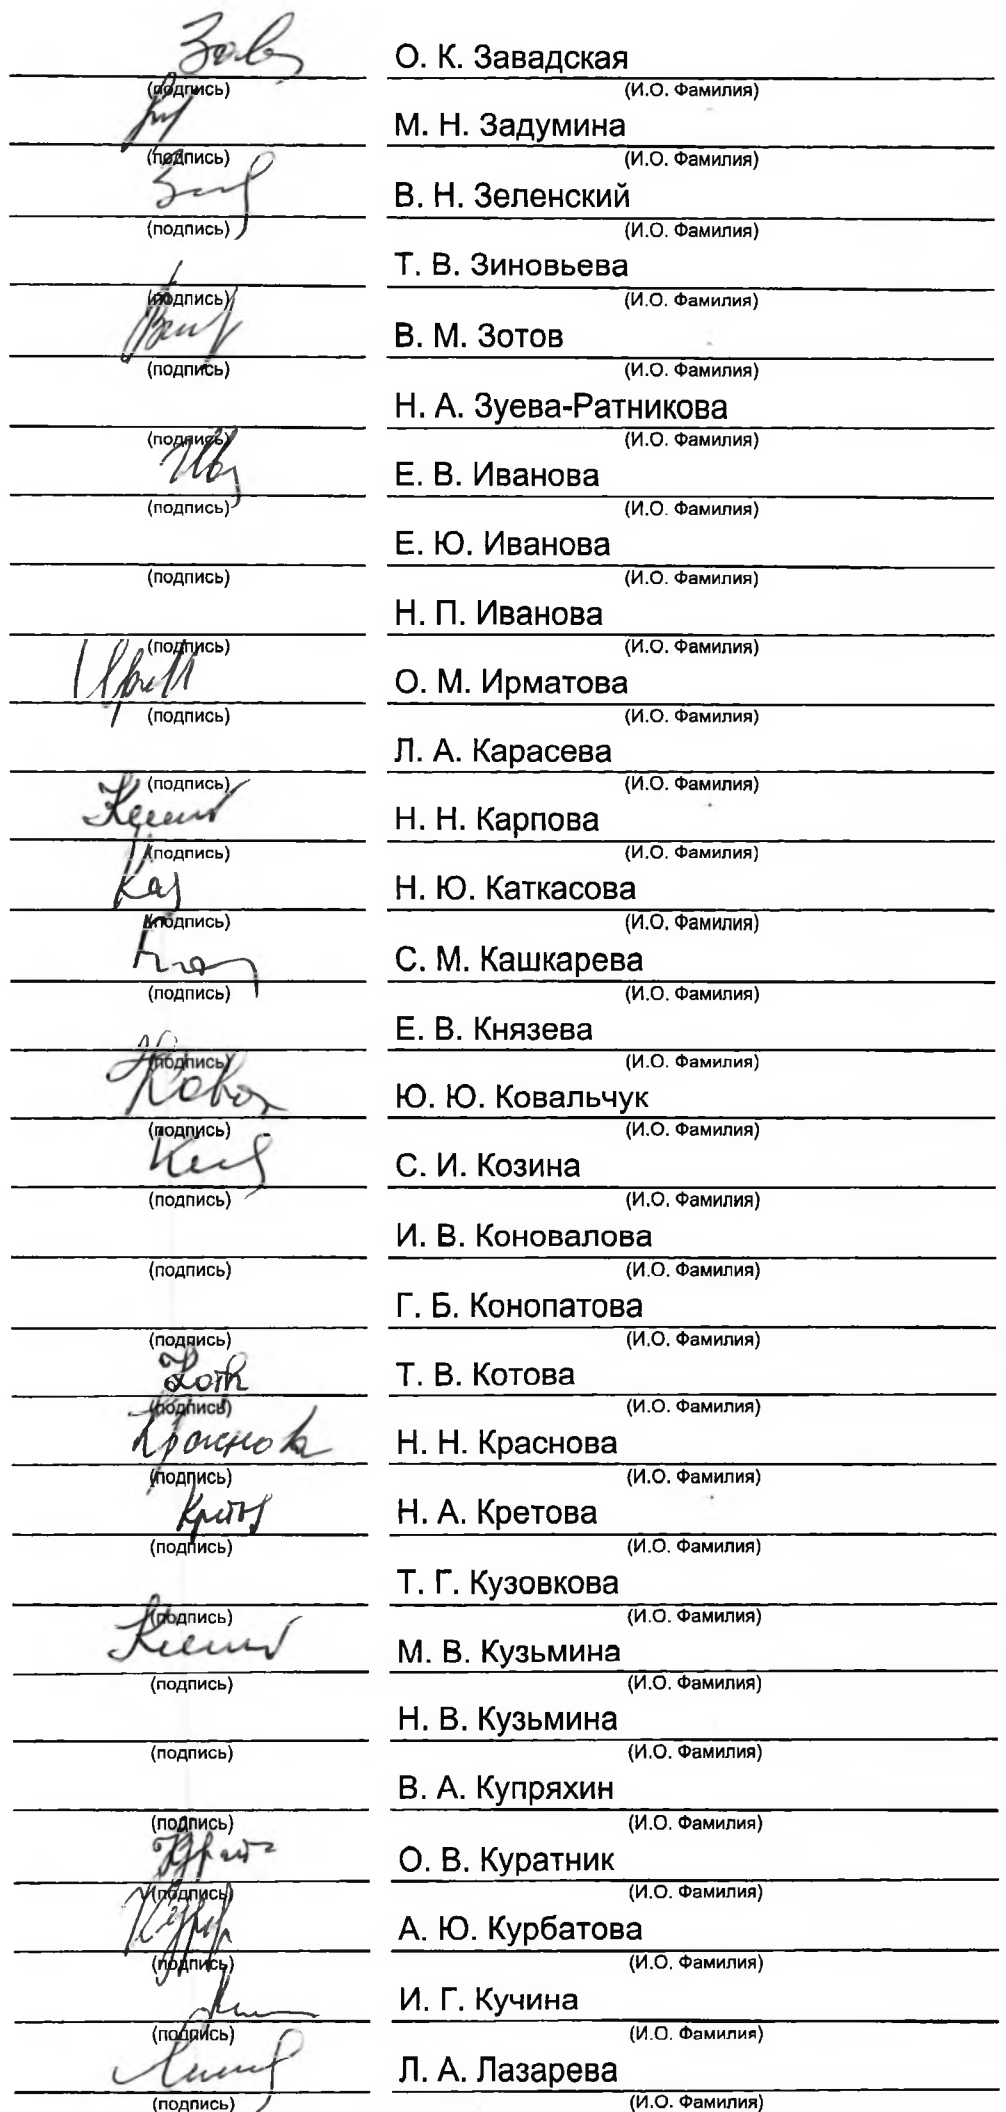 О. К. Завадская
(подпись) (И.О. Фамилия)
М. Н. Задумина
(подпись) (И.О. Фамилия)
В. Н. Зеленский
(подпись) (И.О. Фамилия)
Т. В. Зиновьева
(подпись) (И.О. Фамилия)
В. М. Зотов
(подпись) (И.О. Фамилия)
Н. А. Зуева-Ратникова
(подпись) (И.О. Фамилия)
Е. В. Иванова
(подпись) (И.О. Фамилия)
Е. Ю. Иванова
(подпись) (И.О. Фамилия)
Н. П. Иванова
(подпись) (И.О. Фамилия)
О. М. Ирматова
(подпись) (И.О. Фамилия)
Л. А. Карасева
(подпись) (И.О. Фамилия)
Н. Н. Карпова
(подпись) (И.О. Фамилия)
Н. Ю. Каткасова
(подпись) (И.О. Фамилия)
С. М. Кашкарева
(подпись) (И.О. Фамилия)
Е. В. Князева
(подпись) (И.О. Фамилия)
Ю. Ю. Ковальчук
(подпись) (И.О. Фамилия)
С. И. Козина
(подпись) (И.О. Фамилия)
И. В. Коновалова
(подпись) (И.О. Фамилия)
Г. Б. Конопатова
(подпись) (И.О. Фамилия)
Т. В. Котова
(подпись) (И.О. Фамилия)
Краснова Н. Н. Краснова
(подпись) (И.О. Фамилия)
Н. А. Кретова
(подпись) (И.О. Фамилия)
Т. Г. Кузовкова
(подпись) (И.О. Фамилия)
М. В. Кузьмина
(подпись) (И.О. Фамилия)
Н. В. Кузьмина
(подпись) (И.О. Фамилия)
В. А. Купряхин
(подпись) (И.О. Фамилия)
О. В. Куратник
(подпись) (И.О. Фамилия)
А. Ю. Курбатова
(подпись) (И.О. Фамилия)
И. Г. Кучина
(подпись) (И.О. Фамилия)
Л. А. Лазарева
(подпись) (И.О. Фамилия)